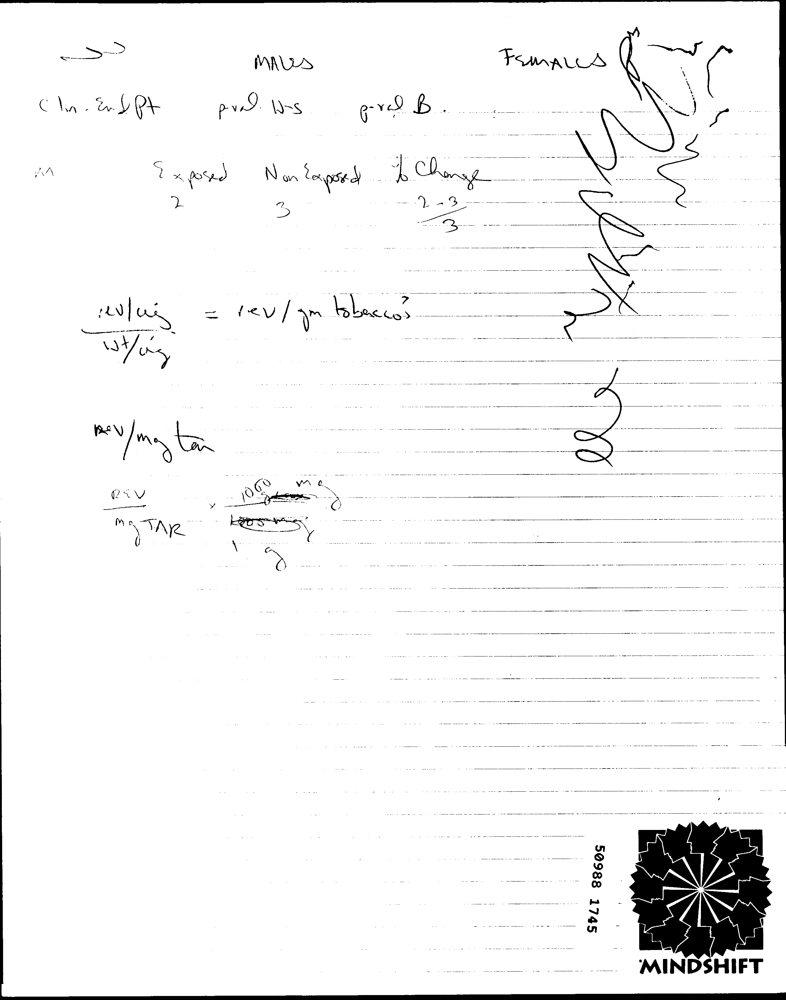 MALES FEMALES
Clin. End Pt p-val W-S p-val B.
Exposed Non Exposed % Change
2 3 2-3
3
rev/cig = rev/gm tobacco?
wt/cig
rev/mg tar
REV x 1000 mg
mg TAR 1 g
50988 1745
MINDSHIFT